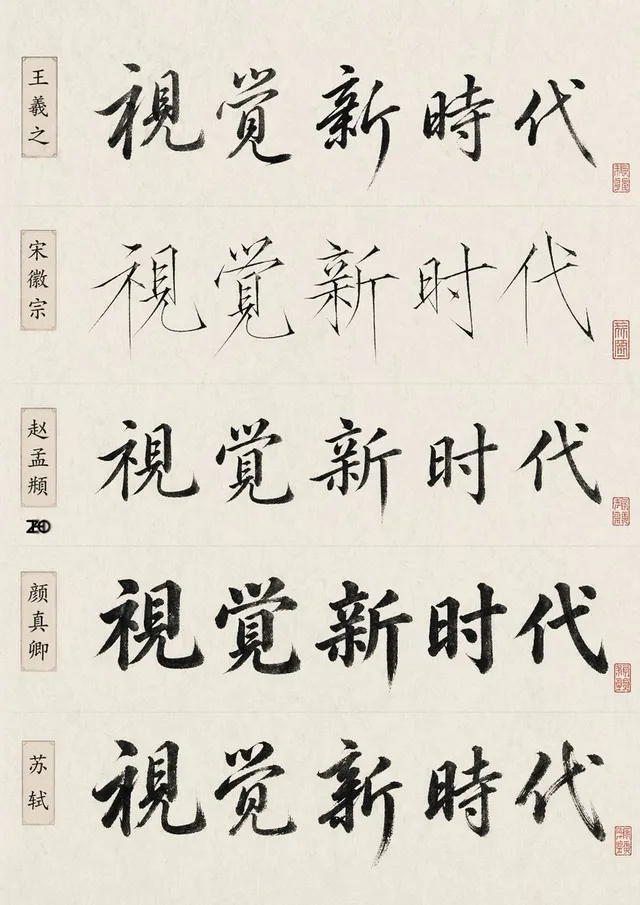 王羲之
視覚新時代
宋徽宗
視覚新时代
赵孟頫
視覚新时代
颜真卿
視覚新时代
苏轼
視觉新時代